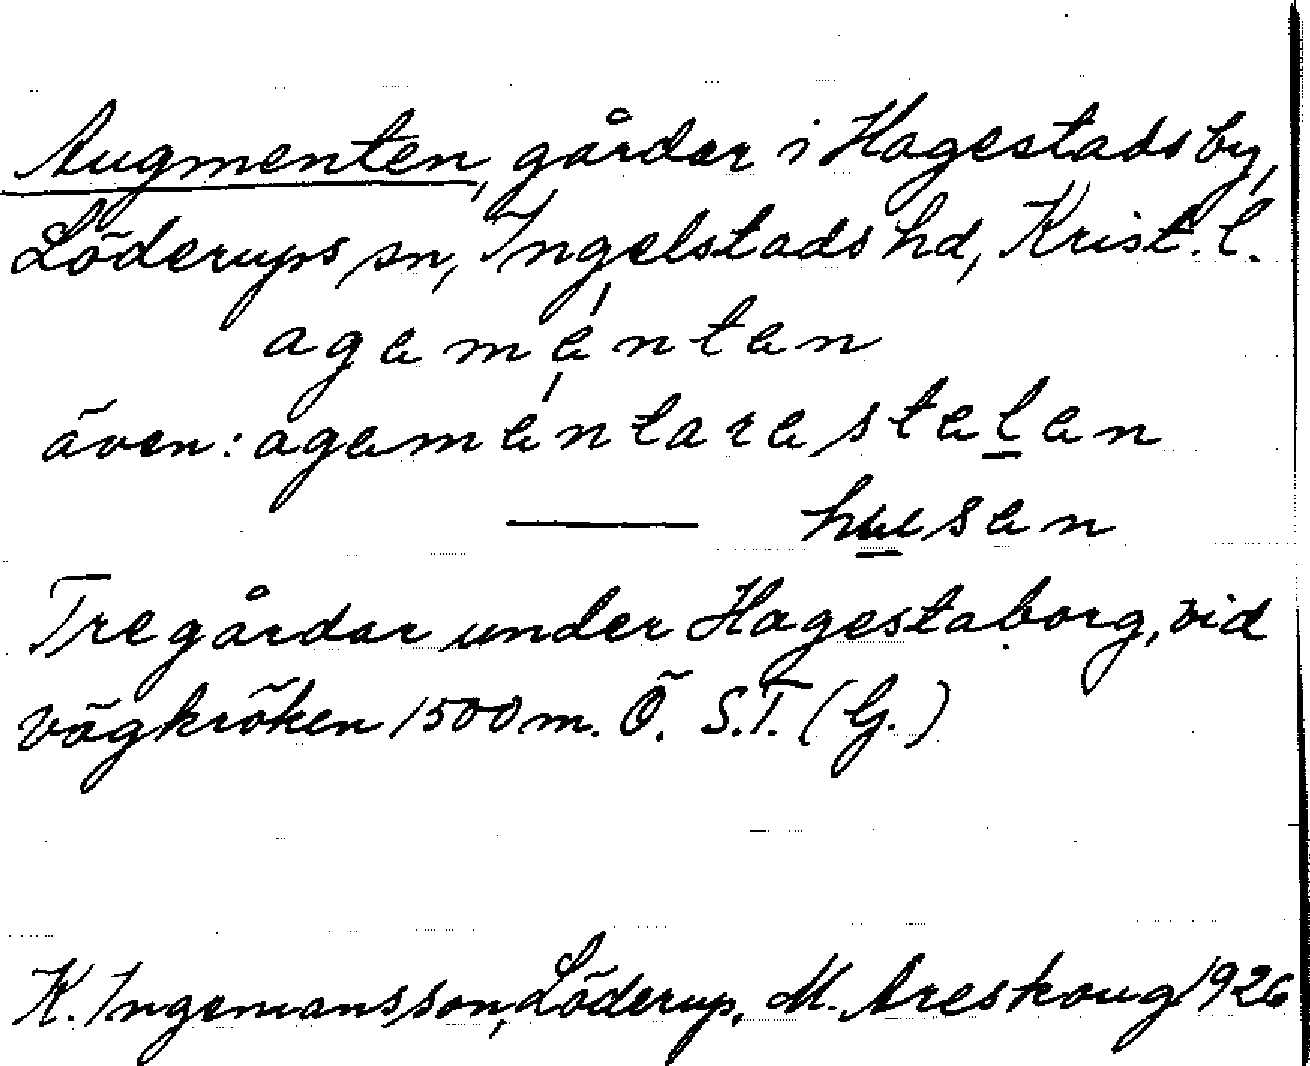 Augmenten, gårdar i Hagestads by,
Löderups sn, Ingelstads hd, Krist. l.
agamántan
även: agamántarastalan
—— husan
Tre gårdar under Hagestaborg, vid
vägkröken 1500 m. Ö. S.T. (G.)
K. Ingemansson, Löderup, M. Areskoug 1926